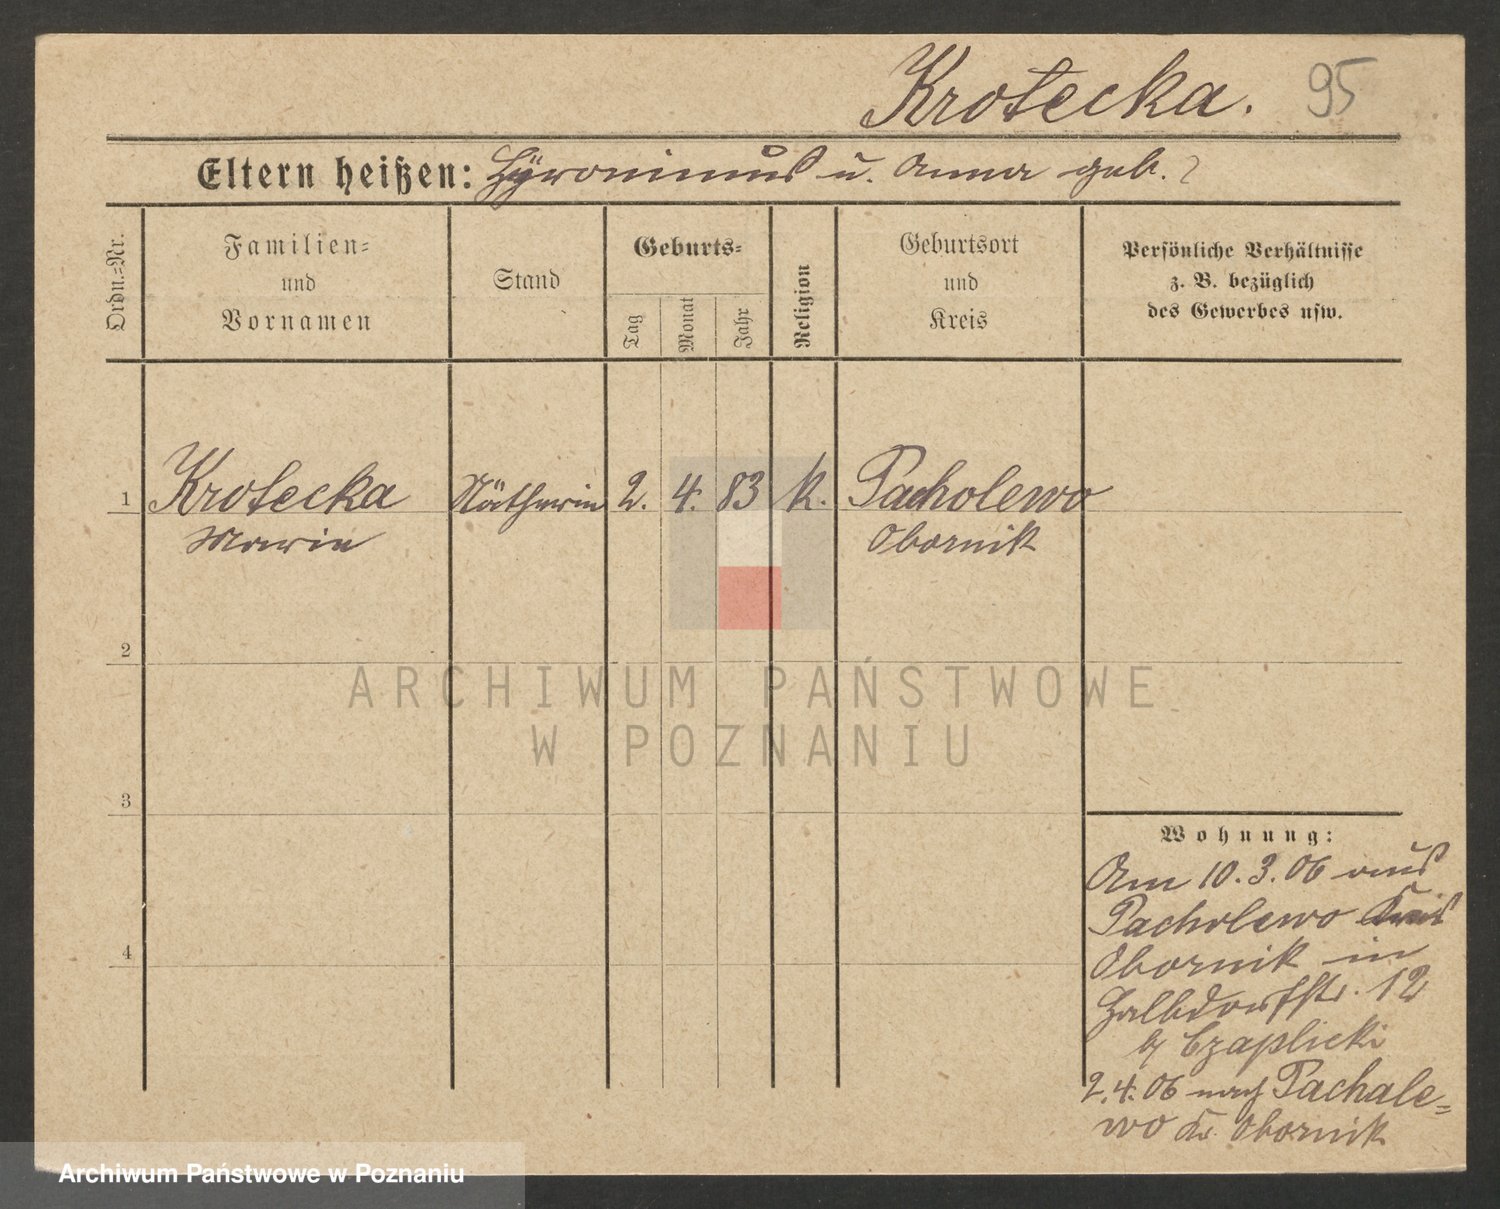 Krotecka. 95
Eltern heißen: Hyronimus u. Anna geb. ?
Ordn.=Nr.
Familien=
und
Vornamen
Stand
Geburts=
Tag
Monat
Jahr
Religion
Geburtsort
und
Kreis
Persönliche Verhältnisse
z. B. bezüglich
des Gewerbes usw.
1 Krotecka Nätherin 2. 4. 83 k. Pacholewo
Marie Obornik
2
ARCHIWUM PAŃSTWOWE
W POZNANIU
3
Wohnung:
Am 10.3.06 aus
Pacholewo Kreis
4
Obornik in
Halbdorfstr. 12
b/ Czaplicki
2.4.06 nach Pachale=
wo Kr. Obornik
Archiwum Państwowe w Poznaniu